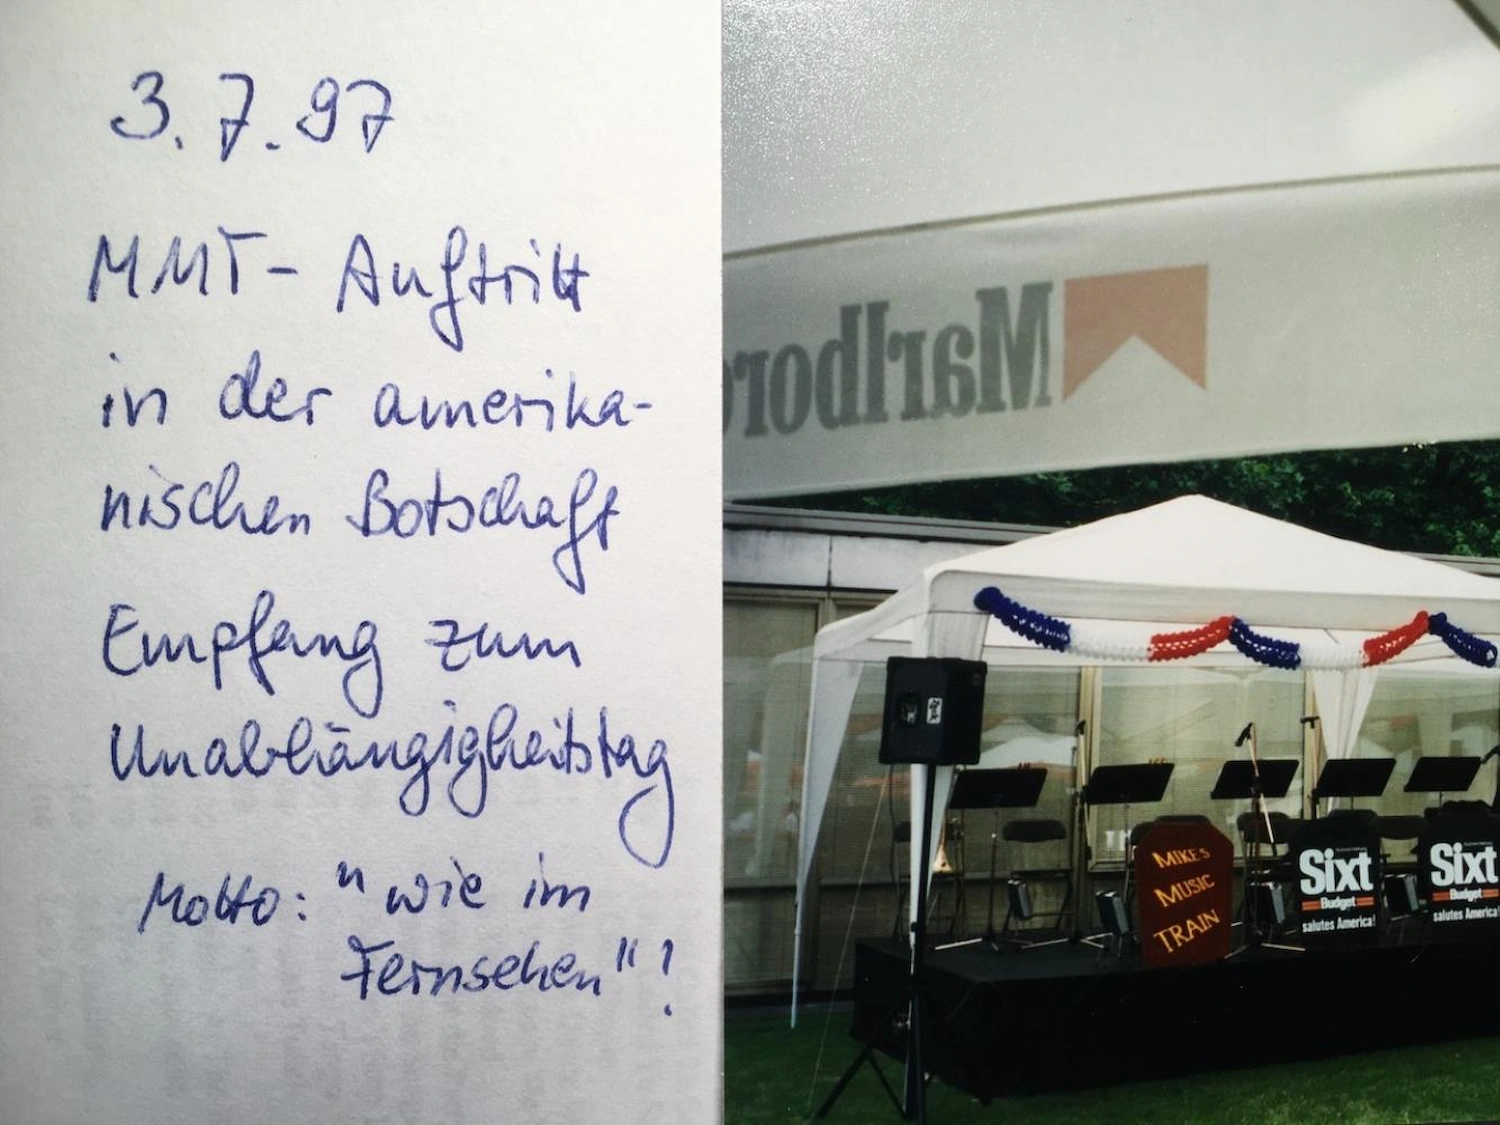 3.7.97
MMT- Auftritt
in der amerika-
nischen Botschaft
Empfang zum
Unabhängigkeitstag
Motto: "wie im
Fernsehen"!
Marlboro
MIKE's
MUSIC
TRAIN
Sixt
Budget
salutes America!
Sixt
Budget
salutes America!